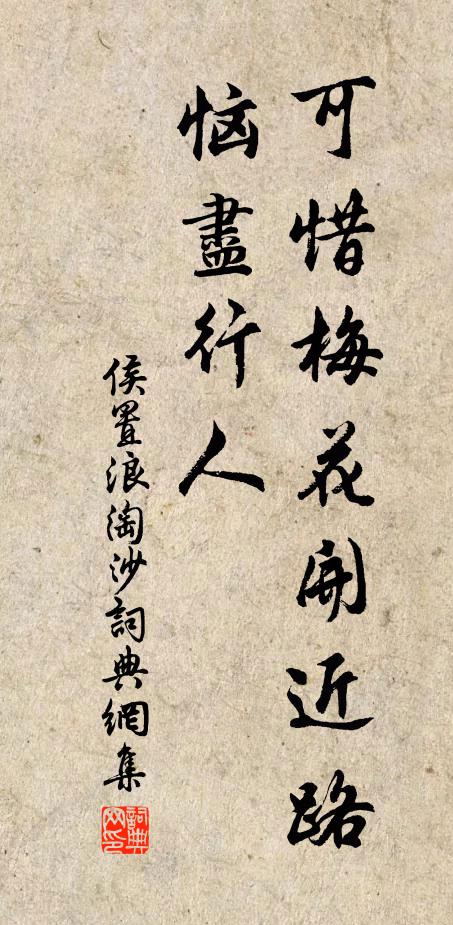 可惜梅花開近路
惱盡行人
侯置浪淘沙詞典網集
詞典网印